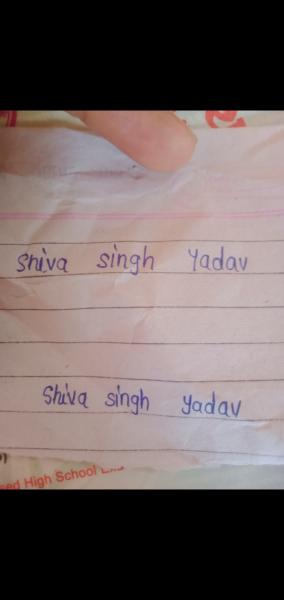 Shiva singh Yadav
Shiva singh yadav
High School